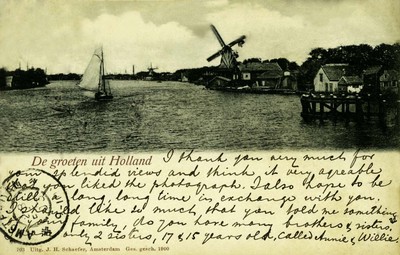 De groeten uit Holland
I thank you very much for
your splendid views and think it very agreable
that you liked the photograph. I also hope to be
still a long, long time in exchange with you.
I should like so much that you told me something
family, do you have many brothers & sisters,
only 2 sisters, 17 & 15 years old, called Annie & Willie.
Uitg. J. H. Schaefer, Amsterdam Ges. gesch. 1900